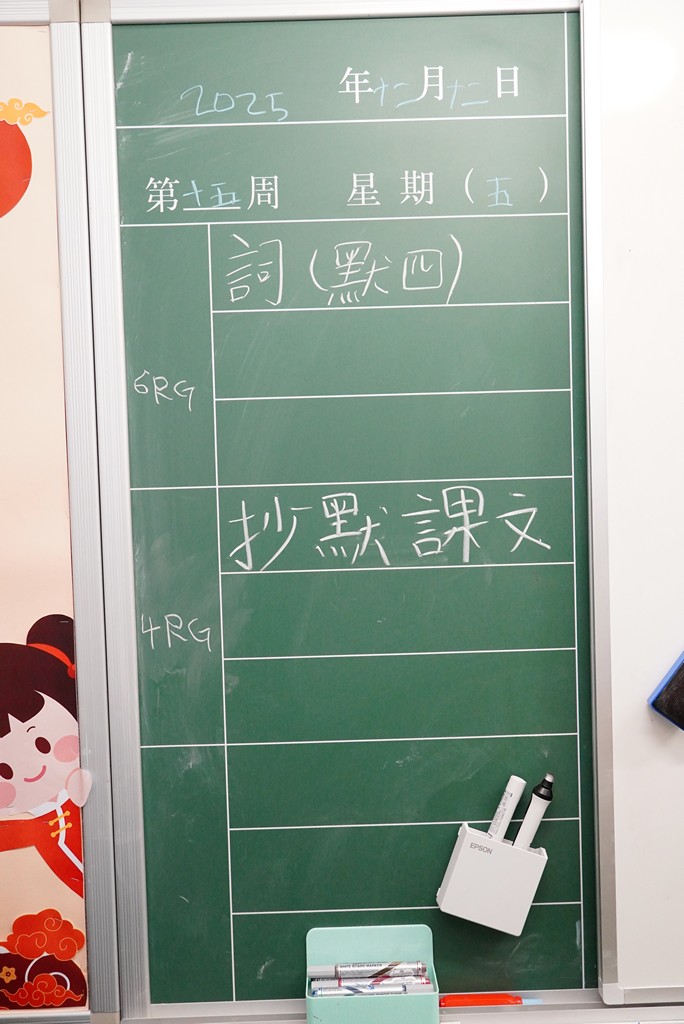 2025 年十二月十二日
第十五周 星期(五)
詞(默四)
6RG
抄默課文
4RG
EPSON
WHITE BOARD MARKER